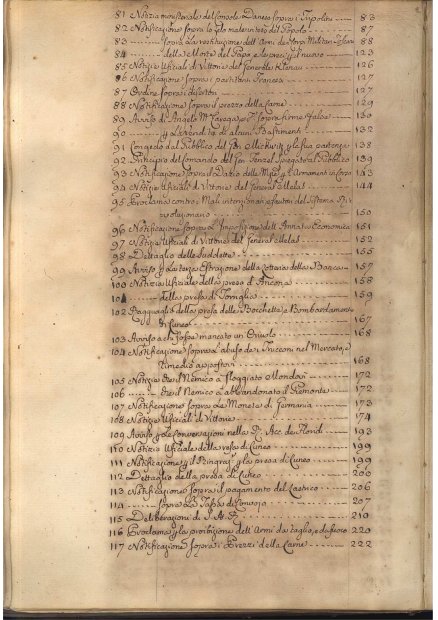 81 Notizia ministeriale del Console Danese sopra i Tripolini 83
82 Notificazione sopra lo zelo mal inteso del Popolo 87
83 sopra la restituzione dell' Armi de Corpi Militari 88
84 dell' Editore del Papa 123
85 Notizie Uficiali di Vittorie del Generale Klenau 126
86 Notificazione sopra i partitanti Francesi 127
87 Ordine sopra i disertori 127
88 Notificazione sopra il prezzo della Carne 129
89 Avviso di Angelo Mª sopra firme false 130
90 p. la Vendita di alcuni Bastimenti 132
91 Congedo dal Pubblico del Gen. e sua partenza 138
92 Principio del Comando del Gen. spiegato al Pubblico 139
93 Notificazione sopra il Dazio delle e l'Armamenti in Corso 143
94 Notizie Uficiali di Vittorie del General Melas 144
95 Proclama contro i Mali intenzionati e fautori del Sistema Ri-
voluzionario 150
96 Notificazione sopra l'Imposizione dell' Annata Economica 151
97 Notizie Uficiali di Vittorie del General Melas 152
98 Dettaglio delle Suddette 155
99 Avviso p. la terza Estrazione della Lotteria della Banca 157
100 Notizia Uficiale della presa d'Ancona 158
101 della presa di 159
102 Ragguaglio della presa delle Bocchetta, e Bombardamento
di Cuneo 167
103 Avviso a chi fosse mancato un Oriuolo 168
104 Notificazione sopra l'abuso de Trecconi nel Mercato, e
Rimedio appostovi 168
105 Notizie che il Nemico à sloggiato Mondovì 172
106 che il Nemico à abbandonato il Piemonte 172
107 Notificazione sopra la Moneta di Germania 173
108 Notizie Uficiali di Vittorie 174
109 Avviso p. le Conversazioni nella R. Acc. dei 193
110 Notizia Uficiale della resa di Cuneo 199
111 Notificazione p. il Ringraz. p. la presa di Cuneo 199
112 Dettaglio della presa di Cuneo 206
113 Notificazione sopra il pagamento del Lastrico 206
114 sopra la Tassa di 207
115 Deliberazioni di S. A. R. 210
116 Proclama p. la proibizione dell' Armi da taglio, e da fuoco 220
117 Notificazione sopra i Prezzi della Carne 222